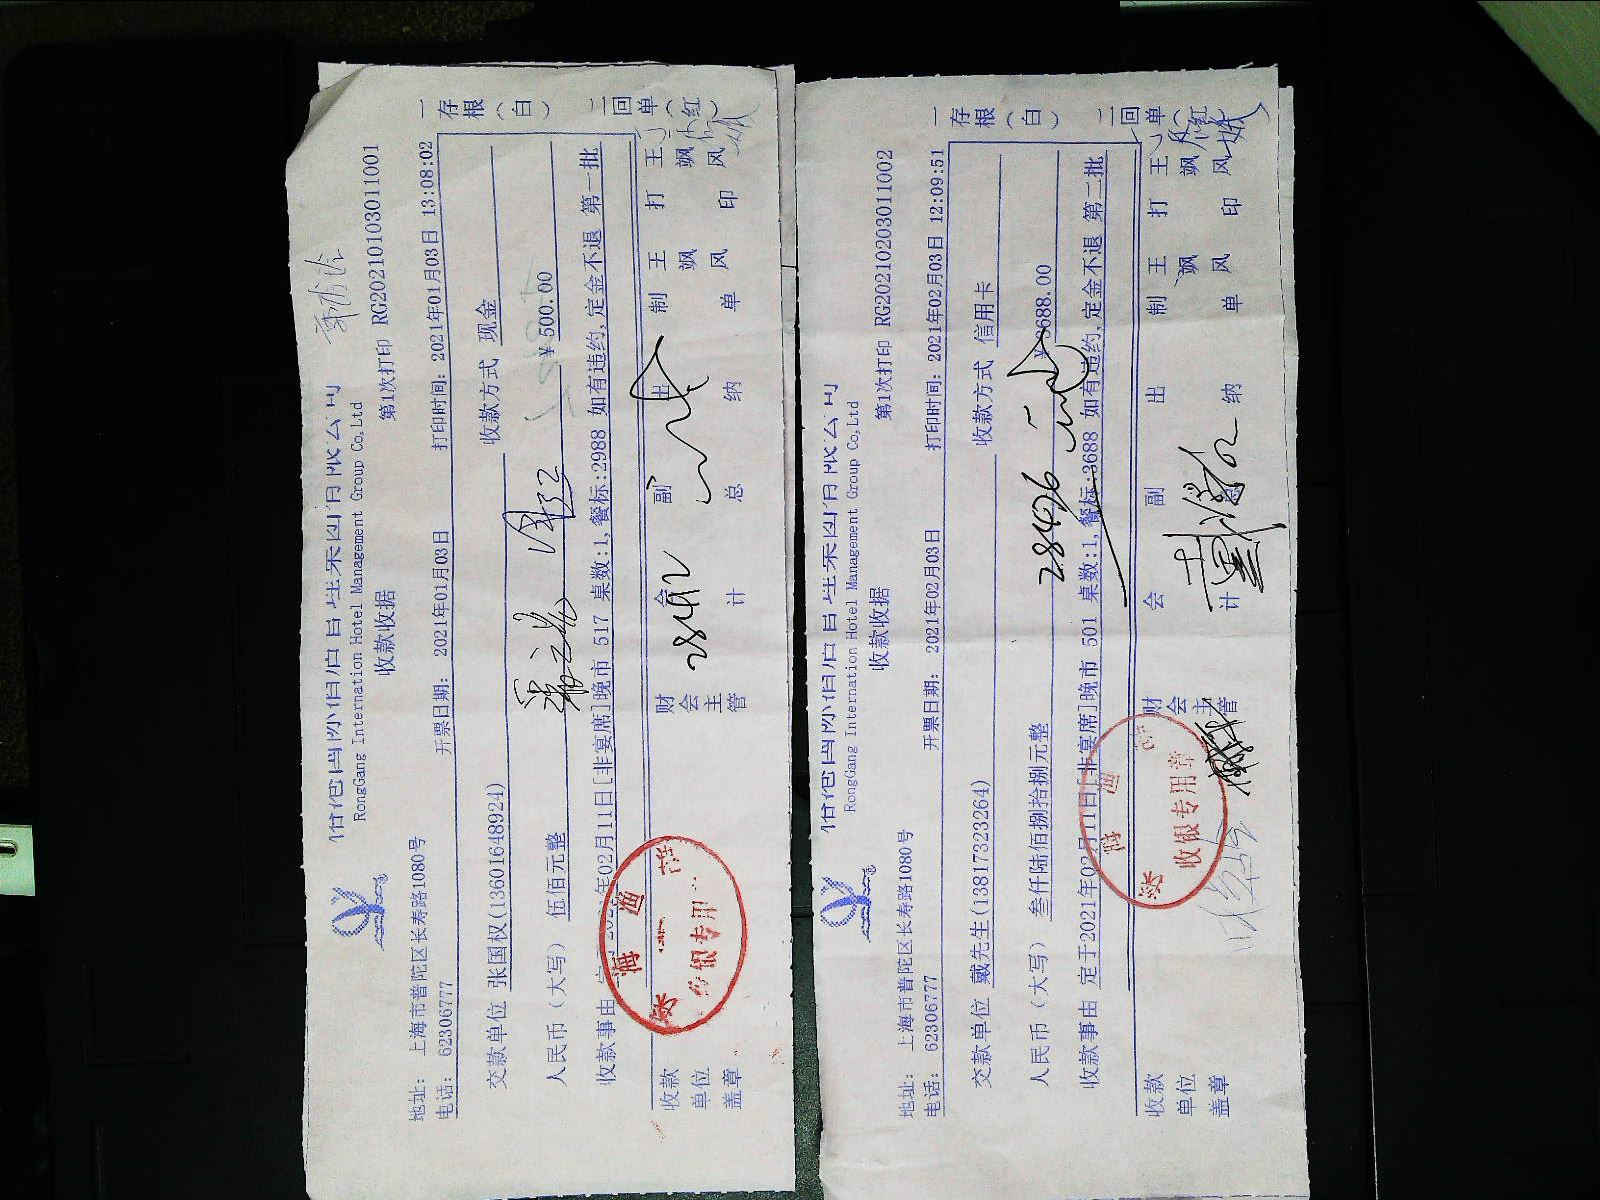 RongGang Internation Hotel Management Group Co,Ltd
收款收据
第1次打印 RG20210103011001
地址: 上海市普陀区长寿路1080号
电话: 62306777
开票日期: 2021年01月03日
打印时间: 2021年01月03日 13:08:02
一存根(白)
二回单(红)
交款单位 张国权(13601648924)
收款方式 现金
人民币(大写) 伍佰元整
¥500.00
收款事由
年02月11日[非宴席]晚市 517 桌数:1,餐标:2988 如有违约,定金不退 第一批
收款单位盖章
财会主管
会计
副总
出纳
制单
王飒风
打印
王飒风
RongGang Internation Hotel Management Group Co,Ltd
收款收据
第1次打印 RG20210203011002
地址: 上海市普陀区长寿路1080号
电话: 62306777
开票日期: 2021年02月03日
打印时间: 2021年02月03日 12:09:51
一存根(白)
二回单(红)
交款单位 戴先生(13817323264)
收款方式 信用卡
人民币(大写) 叁仟陆佰捌拾捌元整
¥3688.00
28476
收款事由 定于2021年02月11日[非宴席]晚市 501 桌数:1,餐标:3688 如有违约,定金不退 第二批
收款单位盖章
收银专用章
财会主管
会计
副总
出纳
制单
王飒风
打印
王飒风